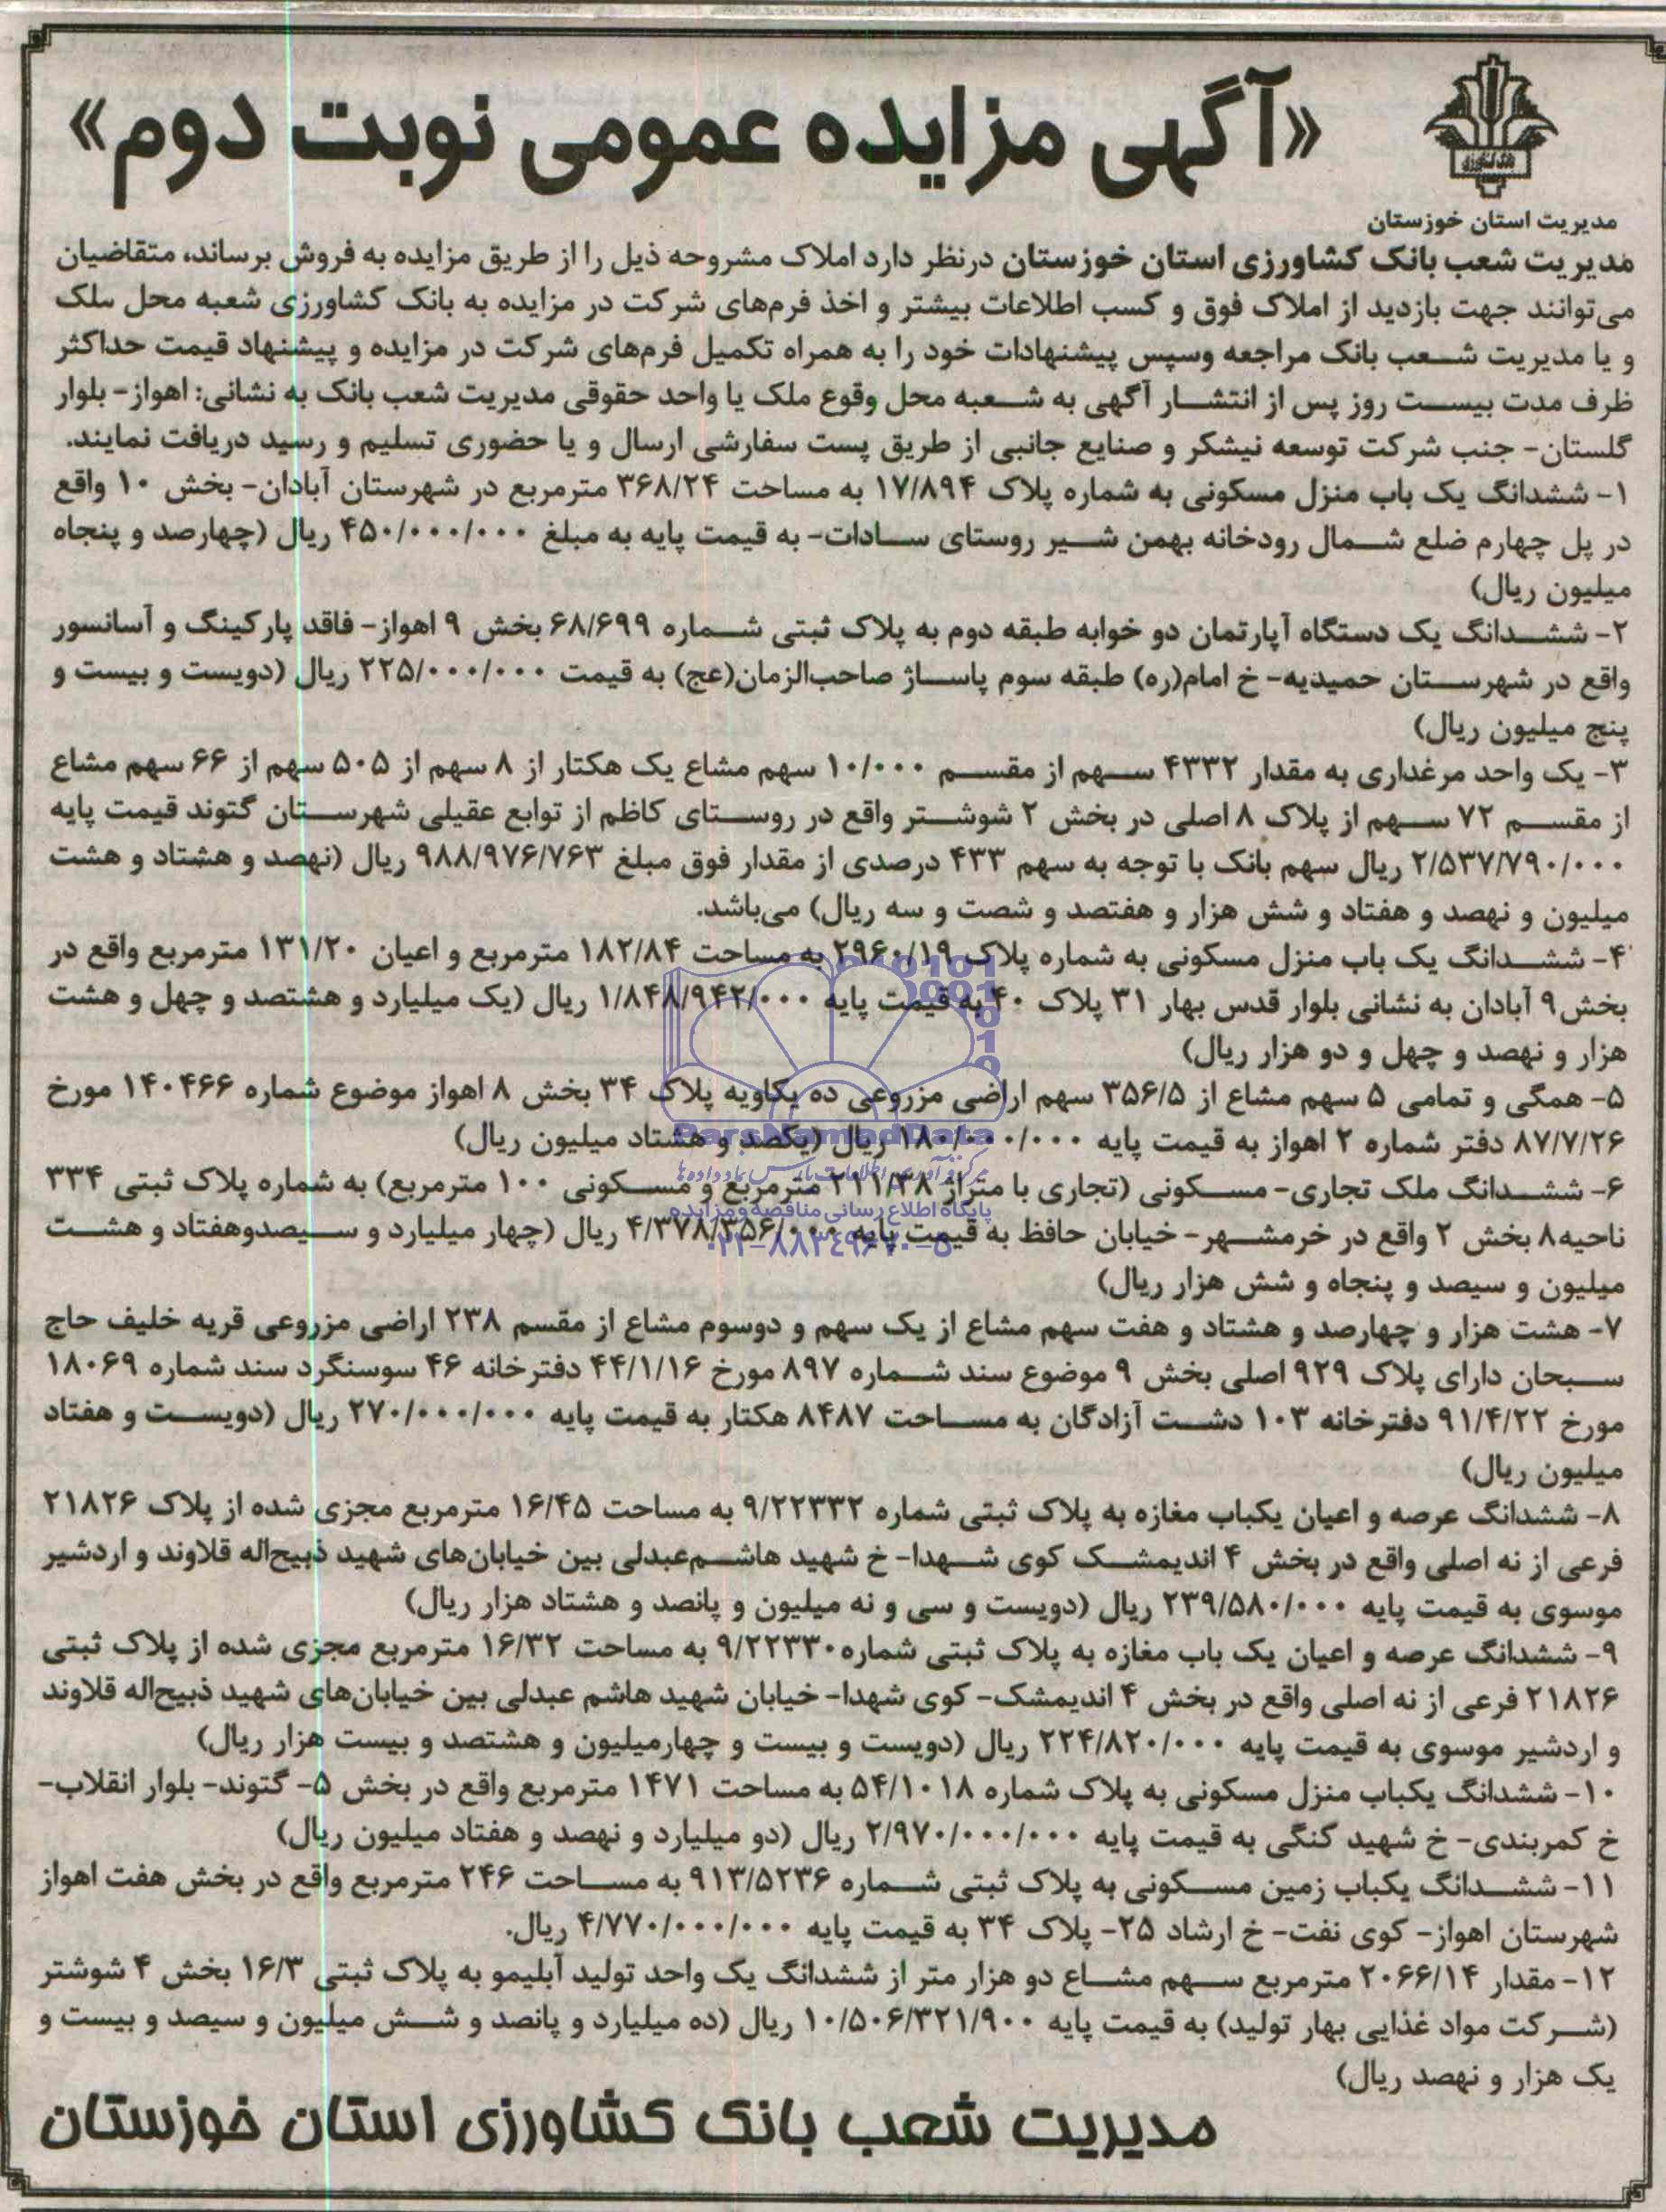 «آگهی مزایده عمومی نوبت دوم»
بانک کشاورزی
مدیریت استان خوزستان
مدیریت شعب بانک کشاورزی استان خوزستان درنظر دارد املاک مشروحه ذیل را از طریق مزایده به فروش برساند، متقاضیان
می‌توانند جهت بازدید از املاک فوق و کسب اطلاعات بیشتر و اخذ فرم‌های شرکت در مزایده به بانک کشاورزی شعبه محل ملک
و یا مدیریت شعب بانک مراجعه وسپس پیشنهادات خود را به همراه تکمیل فرم‌های شرکت در مزایده و پیشنهاد قیمت حداکثر
ظرف مدت بیست روز پس از انتشار آگهی به شعبه محل وقوع ملک یا واحد حقوقی مدیریت شعب بانک به نشانی: اهواز- بلوار
گلستان- جنب شرکت توسعه نیشکر و صنایع جانبی از طریق پست سفارشی ارسال و یا حضوری تسلیم و رسید دریافت نمایند.
۱- ششدانگ یک باب منزل مسکونی به شماره پلاک ۱۷/۸۹۴ به مساحت ۳۶۸/۲۴ مترمربع در شهرستان آبادان- بخش ۱۰ واقع
در پل چهارم ضلع شمال رودخانه بهمن شیر روستای سادات- به قیمت پایه به مبلغ ۴۵۰/۰۰۰/۰۰۰ ریال (چهارصد و پنجاه
میلیون ریال)
۲- ششدانگ یک دستگاه آپارتمان دو خوابه طبقه دوم به پلاک ثبتی شماره ۶۸/۶۹۹ بخش ۹ اهواز- فاقد پارکینگ و آسانسور
واقع در شهرستان حمیدیه- خ امام(ره) طبقه سوم پاساژ صاحب‌الزمان(عج) به قیمت ۲۲۵/۰۰۰/۰۰۰ ریال (دویست و بیست و
پنج میلیون ریال)
۳- یک واحد مرغداری به مقدار ۴۳۳۲ سهم از مقسم ۱۰/۰۰۰ سهم مشاع یک هکتار از ۸ سهم از ۵۰۵ سهم از ۶۶ سهم مشاع
از مقسم ۷۲ سهم از پلاک ۸ اصلی در بخش ۲ شوشتر واقع در روستای کاظم از توابع عقیلی شهرستان گتوند قیمت پایه
۲/۵۳۷/۷۹۰/۰۰۰ ریال سهم بانک با توجه به سهم ۴۳۳ درصدی از مقدار فوق مبلغ ۹۸۸/۹۷۶/۷۶۳ ریال (نهصد و هشتاد و هشت
میلیون و نهصد و هفتاد و شش هزار و هفتصد و شصت و سه ریال) می‌باشد.
۴- ششدانگ یک باب منزل مسکونی به شماره پلاک ۲۹۶۰/۱۹ به مساحت ۱۸۲/۸۴ مترمربع و اعیان ۱۳۱/۲۰ مترمربع واقع در
بخش۹ آبادان به نشانی بلوار قدس بهار ۳۱ پلاک ۴۰ به قیمت پایه ۱/۸۴۸/۹۴۲/۰۰۰ ریال (یک میلیارد و هشتصد و چهل و هشت
هزار و نهصد و چهل و دو هزار ریال)
۵- همگی و تمامی ۵ سهم مشاع از ۳۵۶/۵ سهم اراضی مزروعی ده یکاویه پلاک ۳۴ بخش ۸ اهواز موضوع شماره ۱۴۰۴۶۶ مورخ
۸۷/۷/۲۶ دفتر شماره ۲ اهواز به قیمت پایه ۱۸۰/۰۰۰/۰۰۰ ریال (یکصد و هشتاد میلیون ریال)
ParsNamadData
۶- ششدانگ ملک تجاری- مسکونی (تجاری با متراژ ۲۱۱/۳۸ مترمربع و مسکونی ۱۰۰ مترمربع) به شماره پلاک ثبتی ۳۳۴
پایگاه اطلاع رسانی مناقصه و مزایده
ناحیه۸ بخش ۲ واقع در خرمشهر- خیابان حافظ به قیمت پایه ۴/۳۷۸/۳۵۶/۰۰۰ ریال (چهار میلیارد و سیصدوهفتاد و هشت
۰۲۱-۸۸۳۴۹۶۷۰-۵
میلیون و سیصد و پنجاه و شش هزار ریال)
۷- هشت هزار و چهارصد و هشتاد و هفت سهم مشاع از یک سهم و دوسوم مشاع از مقسم ۲۳۸ اراضی مزروعی قریه خلیف حاج
سبحان دارای پلاک ۹۲۹ اصلی بخش ۹ موضوع سند شماره ۸۹۷ مورخ ۴۴/۱/۱۶ دفترخانه ۴۶ سوسنگرد سند شماره ۱۸۰۶۹
مورخ ۹۱/۴/۲۲ دفترخانه ۱۰۳ دشت آزادگان به مساحت ۸۴۸۷ هکتار به قیمت پایه ۲۷۰/۰۰۰/۰۰۰ ریال (دویست و هفتاد
میلیون ریال)
۸- ششدانگ عرصه و اعیان یکباب مغازه به پلاک ثبتی شماره ۹/۲۲۳۳۲ به مساحت ۱۶/۴۵ مترمربع مجزی شده از پلاک ۲۱۸۲۶
فرعی از نه اصلی واقع در بخش ۴ اندیمشک کوی شهدا- خ شهید هاشم‌عبدلی بین خیابان‌های شهید ذبیح‌اله قلاوند و اردشیر
موسوی به قیمت پایه ۲۳۹/۵۸۰/۰۰۰ ریال (دویست و سی و نه میلیون و پانصد و هشتاد هزار ریال)
۹- ششدانگ عرصه و اعیان یک باب مغازه به پلاک ثبتی شماره۹/۲۲۳۳۰ به مساحت ۱۶/۳۲ مترمربع مجزی شده از پلاک ثبتی
۲۱۸۲۶ فرعی از نه اصلی واقع در بخش ۴ اندیمشک- کوی شهدا- خیابان شهید هاشم عبدلی بین خیابان‌های شهید ذبیح‌اله قلاوند
و اردشیر موسوی به قیمت پایه ۲۲۴/۸۲۰/۰۰۰ ریال (دویست و بیست و چهارمیلیون و هشتصد و بیست هزار ریال)
۱۰- ششدانگ یکباب منزل مسکونی به پلاک شماره ۵۴/۱۰۱۸ به مساحت ۱۴۷۱ مترمربع واقع در بخش ۵- گتوند- بلوار انقلاب-
خ کمربندی- خ شهید کنگی به قیمت پایه ۲/۹۷۰/۰۰۰/۰۰۰ ریال (دو میلیارد و نهصد و هفتاد میلیون ریال)
۱۱- ششدانگ یکباب زمین مسکونی به پلاک ثبتی شماره ۹۱۳/۵۲۳۶ به مساحت ۲۴۶ مترمربع واقع در بخش هفت اهواز
شهرستان اهواز- کوی نفت- خ ارشاد ۲۵- پلاک ۳۴ به قیمت پایه ۴/۷۷۰/۰۰۰/۰۰۰ ریال.
۱۲- مقدار ۲۰۶۶/۱۴ مترمربع سهم مشاع دو هزار متر از ششدانگ یک واحد تولید آبلیمو به پلاک ثبتی ۱۶/۳ بخش ۴ شوشتر
(شرکت مواد غذایی بهار تولید) به قیمت پایه ۱۰/۵۰۶/۳۲۱/۹۰۰ ریال (ده میلیارد و پانصد و شش میلیون و سیصد و بیست و
یک هزار و نهصد ریال)
مدیریت شعب بانک کشاورزی استان خوزستان